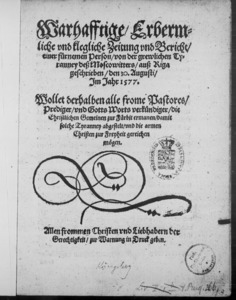 Warhafftige / Erberm-
liche vnd klegliche Zeitung vnd Bericht /
einer fürnemen Person / von der grewlichen Ty-
ranney deß Moscowitters / auß Riga
geschrieben / den 20. Augusti /
Im Jahr 1577.
Wollet derhalben alle frome Pastores /
Prediger / vnd Gotts Worts verkündiger / die
Christlichen Gemeinen zur Fürbit ermanen / damit
solche Tyranney abgestelt / vnd die armen
Christen zur Freyheit gereichen
mögen.
Allen frommen Christen vnd Liebhabern der
Gerechtigkeit / zur Warnung in Druck geben.